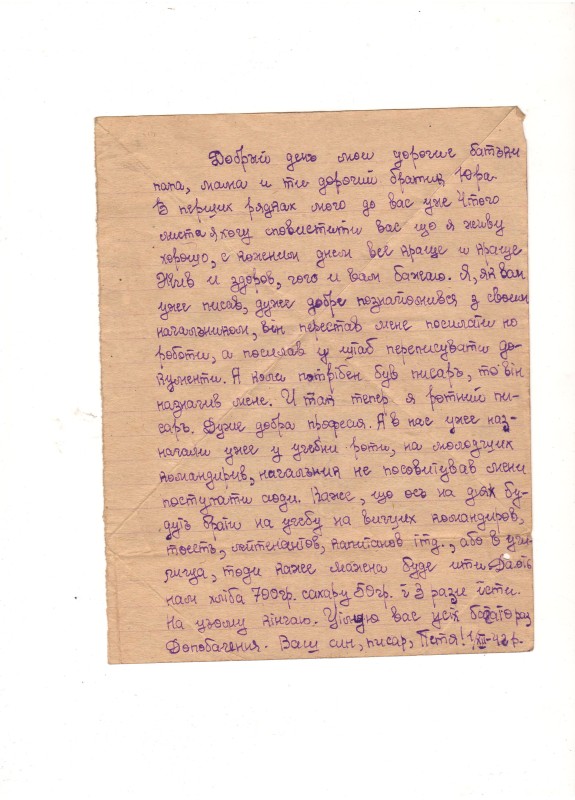 Добрый день мои дорогие батьки
папа, мама и ти дорогий братик Юра.
В перших рядках мого до вас уже 4того
листа я хочу сповистити вас що я живу
хорошо, с кожним днем все краще и краще
Жив и здоров, чого и вам бажаю. Я, як вам
уже писав, дуже добре познакомився з своим
начальником, він перестав мене посилати на
роботи, а посилав у штаб переписувати до-
кументи. А коли потрібен був писарь, то він
назначив мене. И так тепер я ротний пи-
сарь. Дуже добра професия. А в нас уже наз-
начали уже у учебни роти, на молодших
командирив, начальник не посовитував мени
поступати сюди. Каже, що ось на днях бу-
дуть брати на учебу на вищих командиров,
тоесть, лейтенантов, капитанов ітд., або в учи-
лища, тоди каже можна буде ити Дають
нам хліба 700гр. сахару 50гр. і 3 рази їсти.
На цьому кінчаю. Цілую вас усіх багато раз
Допобачення. Ваш син, писар, Петя! 1/XII-42 р.